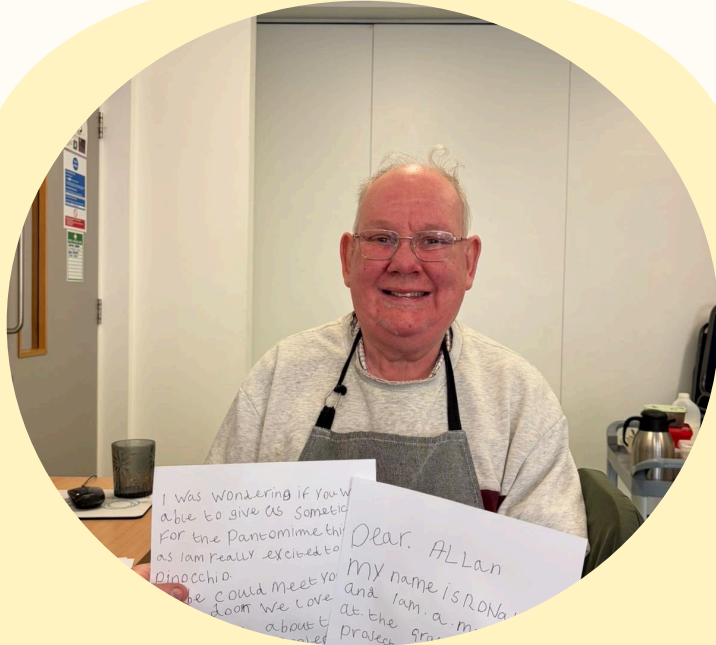 I was wondering if you w
able to give us sometic
For the Pantomime thi
as Iam really excited to
Pinocchio.
be could meet yo
doom we Love
about t
Dear. ALLan
my name is RONa
and Iam. a. m
at. the. gra
Project